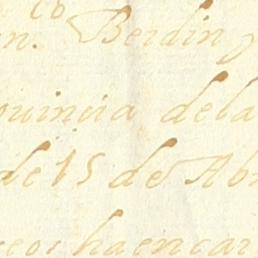 co
n. Berdin y
ouincia dela
de 15 de Abr
reo, ha encar